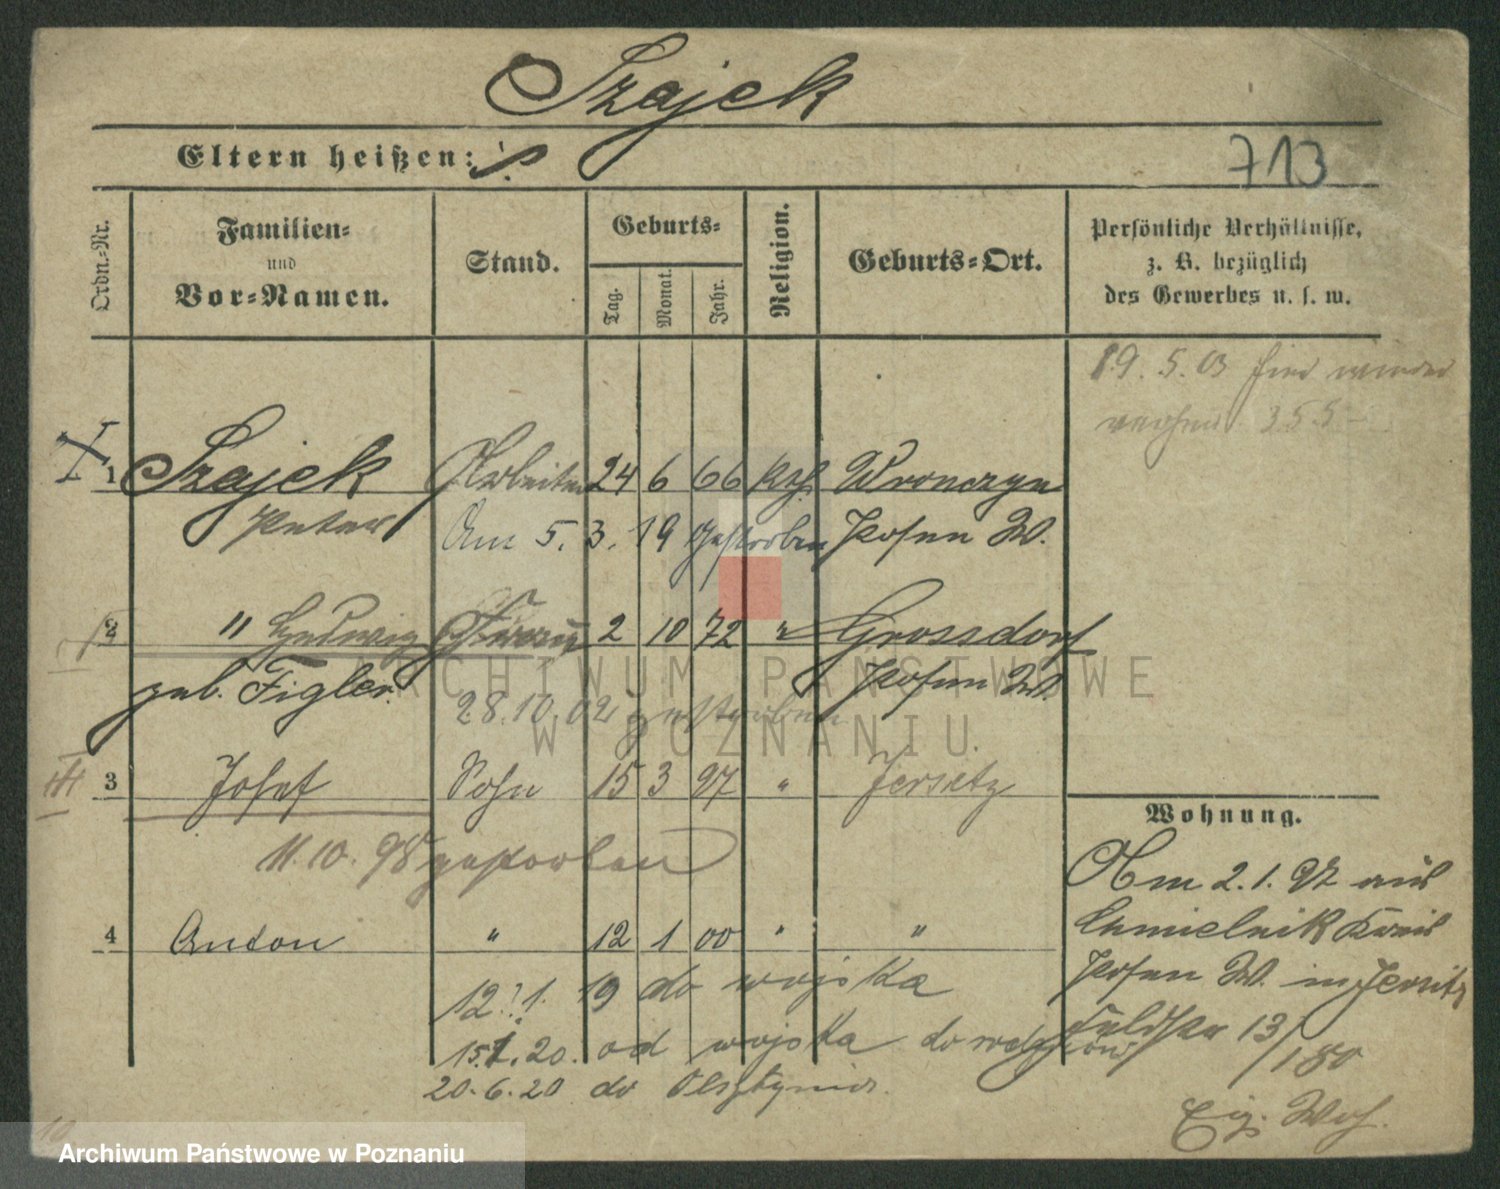 Szajek
Eltern heißen:
713
Ordn.-Nr.
Familien-
und
Vor-Namen.
Stand.
Geburts-
Tag.
Monat.
Jahr.
Religion.
Geburts-Ort.
Persönliche Verhältnisse,
z. B. bezüglich
des Gewerbes u. s. w.
19. 5. 03
I
1 Szajek Arbeiter 24 6 66 kth Wronczyn
Peter Am 5. 3. 19 gestorben Posen W.
2 " Hedwig Frau 2 10 72 " Grossdorf
geb. Figler Posen W.
28.10.02 gestorben
III
3 Josef Sohn 15 3 97 " Jersitz
11. 10. 98 gestorben
4 Anton " 12 1 00 " "
12. 1. 19 do wojska
15.1.20. od wojska do rodziców
20.6.20 do Olsztynia.
Wohnung.
Am 2.1.97 aus
Chmielnik Kreis
Posen W. in Jersitz
Feldstr 13/
/180
Eig. Woh.
ARCHIWUM PAŃSTWOWE
W POZNANIU
Archiwum Państwowe w Poznaniu